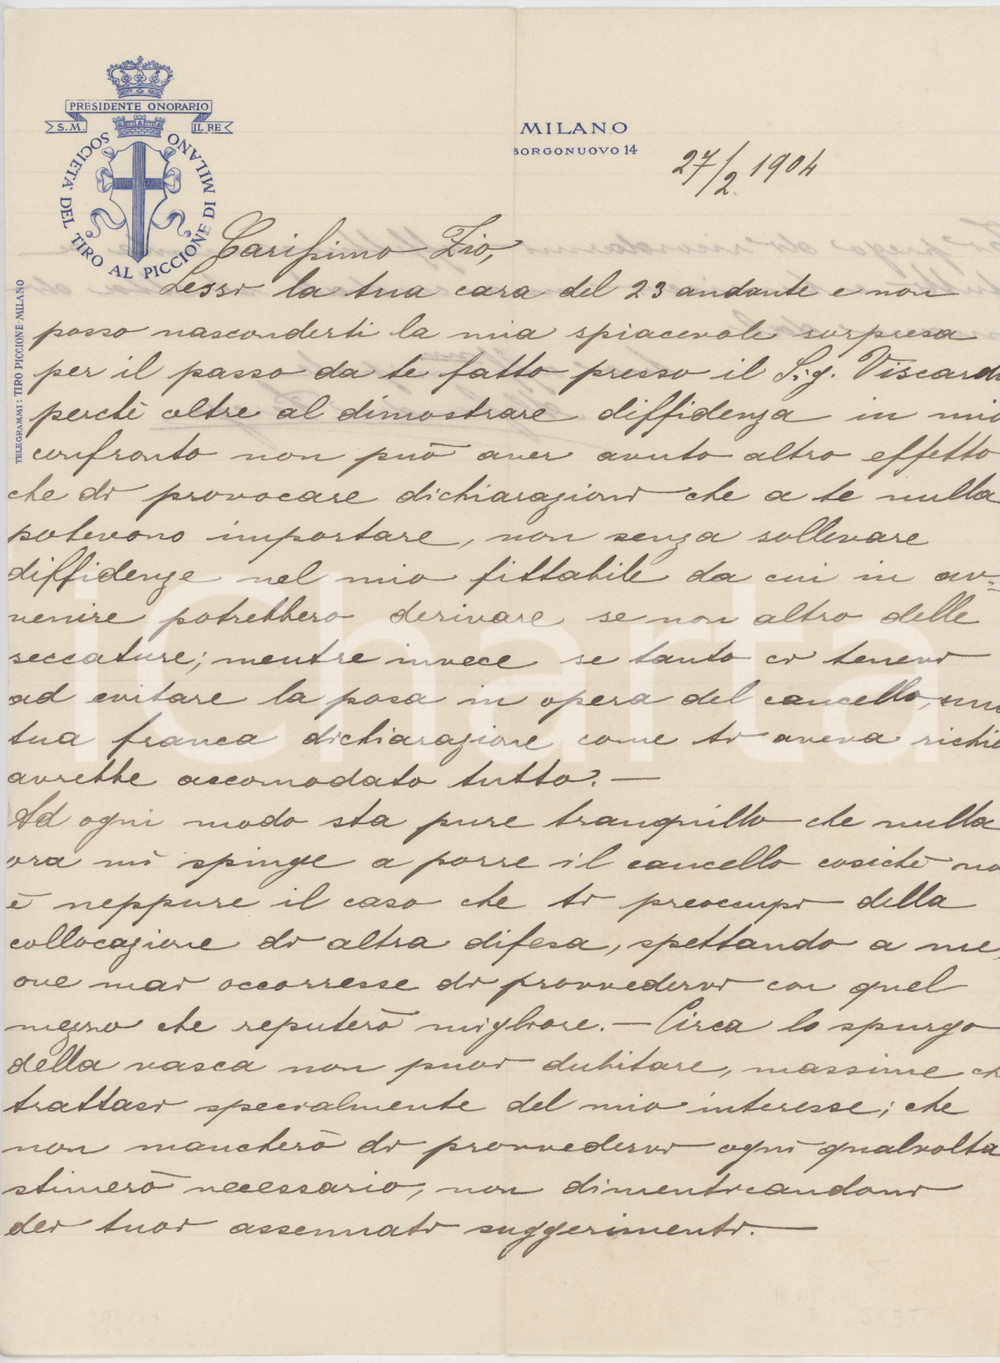 PRESIDENTE ONORARIO
S.M. IL RE
SOCIETÀ DEL TIRO AL PICCIONE DI MILANO
TELEGRAMMI: TIRO PICCIONE-MILANO
MILANO
BORGONUOVO 14
27/2 1904
Carissimo Zio,
Lessi la tua cara del 23 andante e non
posso nasconderti la mia spiacevole sorpresa
per il passo da te fatto presso il Sig. Viscardi
perchè oltre al dimostrare diffidenza in mio
confronto non può aver avuto altro effetto
che di provocare dichiarazioni che a te nulla
potevono importare, non senza sollevare
diffidenze nel mio fittabile da cui in av=
venire potrebbero derivare se non altro delle
seccature; mentre invece se tanto ci tenevi
ad evitare la posa in opera del cancello, una
tua franca dichiarazione come ti aveva richie
avrebbe accomodato tutto. —
Ad ogni modo sta pure tranquillo che nulla
ora mi spinge a porre il cancello cosichè no
è neppure il caso che ti preoccupi della
collocazione di altra difesa, spettando a me,
ove mai occorresse di provvedervi con quel
mezzo che reputerò migliore. — Circa lo spurgo
della vasca non puoi dubitare, massime ch
trattasi specialmente del mio interesse; che
non mancherò di provvedervi ogni qualvolta
stimerò necessario, non dimenticandomi
dei tuoi assennati suggerimenti. —
iCharta